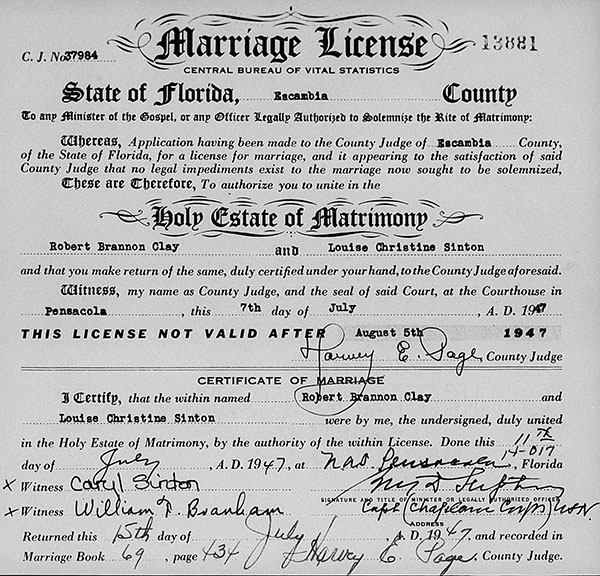 Marriage License
C. J. No 37984 13881
CENTRAL BUREAU OF VITAL STATISTICS
State of Florida, Escambia County
To any Minister of the Gospel, or any Officer Legally Authorized to Solemnize the Rite of Matrimony:
Whereas, Application having been made to the County Judge of Escambia County,
of the State of Florida, for a license for marriage, and it appearing to the satisfaction of said
County Judge that no legal impediments exist to the marriage now sought to be solemnized,
These are Therefore, To authorize you to unite in the
Holy Estate of Matrimony
Robert Brannon Clay and Louise Christine Sinton
and that you make return of the same, duly certified under your hand, to the County Judge aforesaid.
Witness, my name as County Judge, and the seal of said Court, at the Courthouse in
Pensacola, this 7th day of July A. D. 1947
THIS LICENSE NOT VALID AFTER August 5th 1947
Harvey E. Page County Judge
CERTIFICATE OF MARRIAGE
I Certify, that the within named Robert Brannon Clay and
Louise Christine Sinton were by me, the undersigned, duly united
in the Holy Estate of Matrimony, by the authority of the within License. Done this 11th
14-017
day of July, A. D. 1947, at NAS Pensacola, Florida
X Witness Caryl Sinton
SIGNATURE AND TITLE OF MINISTER OR LEGALLY AUTHORIZED OFFICER
X Witness William T. Branham Capt (Chaplain Corps) USN
ADDRESS
Returned this 15th day of July, A. D. 1947. and recorded in
Marriage Book 69, page 434 Harvey E. Page, County Judge.